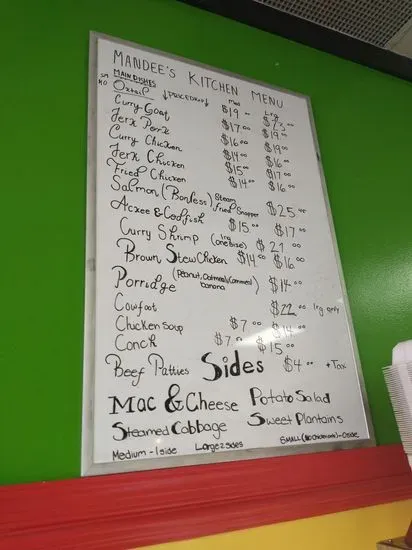 MANDEE'S KITCHEN MENU
MAIN DISHES Med Lrg
Oxtail $19.00 $23.00
Curry Goat $17.00 $19.00
Jerk Pork $16.00 $19.00
Curry Chicken $14.00 $16.00
Jerk Chicken $15.00 $17.00
Fried Chicken $14.00 $16.00
Salmon (Bonless) Steam Fried Snapper $25.00
Ackee & Codfish $15.00 $17.00
Curry Shrimp (lrg one size) $21.00
Brown Stew Chicken $14.00 $16.00
Porridge (Peanut, Oatmeal, Cornmeal banana) $14.00
Cowfoot $22.00 lrg only
Chicken Soup $7.00 $14.00
Conch $7.00 $15.00
Beef Patties $4.00 +Tax
Sides
Mac & Cheese Potato Salad
Steamed Cabbage Sweet Plantains
Medium - 1 side Large 2 sides